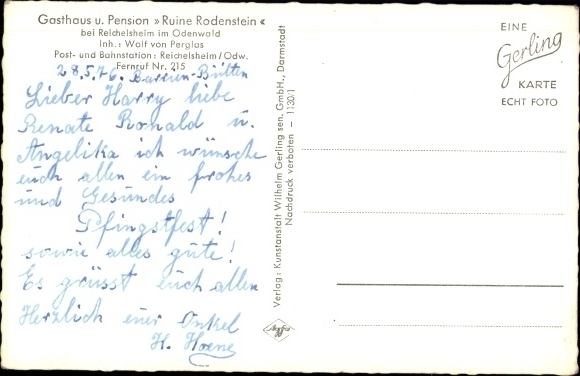 Gasthaus u. Pension »Ruine Rodenstein«
bei Reichelsheim im Odenwald
Inh.: Wolf von Perglas
Post- und Bahnstation: Reichelsheim/Odw.
Fernruf Nr. 215
28.5.76. Barrien-Britten
Lieber Harry liebe
Renate Ronald u.
Angelika ich wünsche
euch allen ein frohes
und Gesundes
Pfingstfest!
sowie alles gute!
Es grüsst euch allen
Herzlich euer Onkel
H. Hoene
Verlag: Kunstanstalt Wilhelm Gerling sen. GmbH., Darmstadt
Nachdruck verboten – 1130/1
Agfa
EINE
Gerling
KARTE
ECHT FOTO